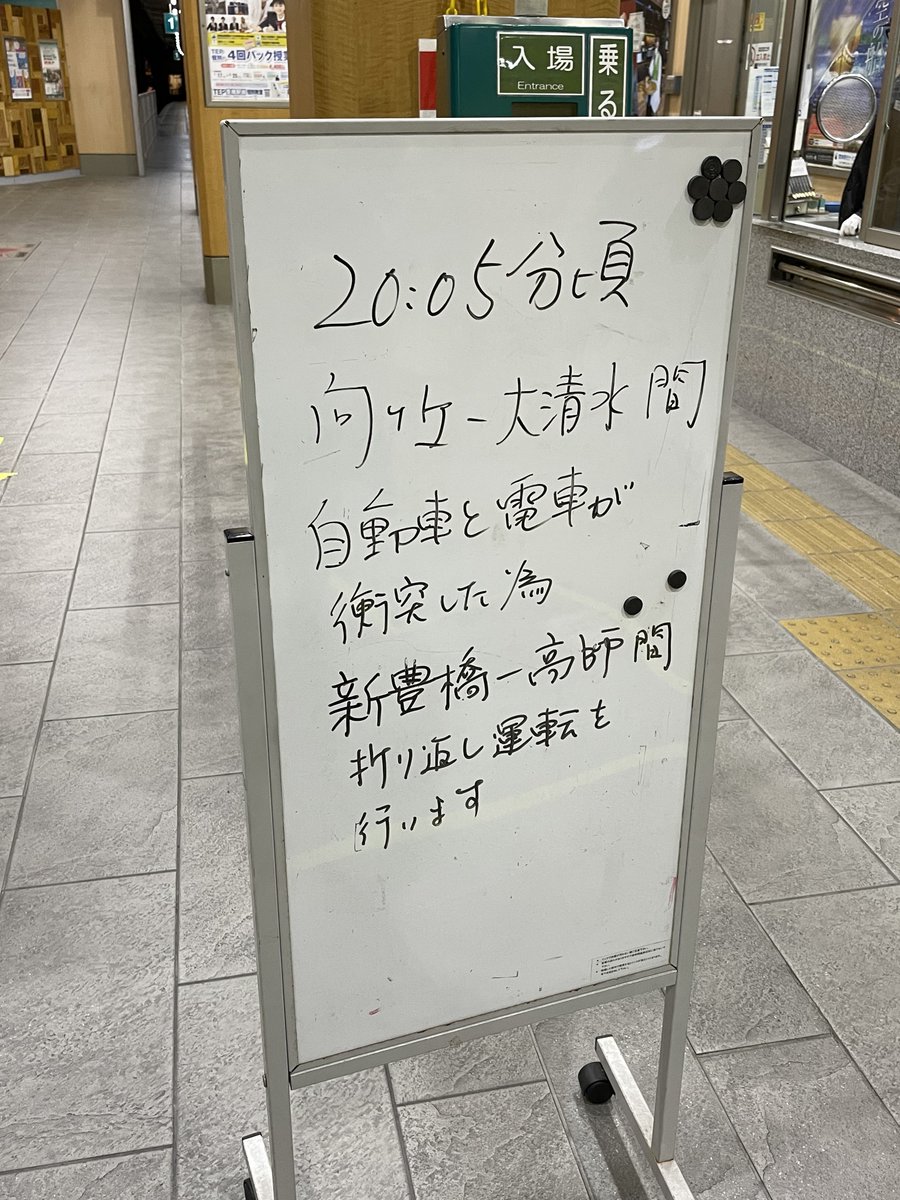 入場
Entrance
乗る
4回パック授業
20:05分頃
向ケ丘-大清水間
自動車と電車が
衝突した為
新豊橋-高師間
折り返し運転を
行います